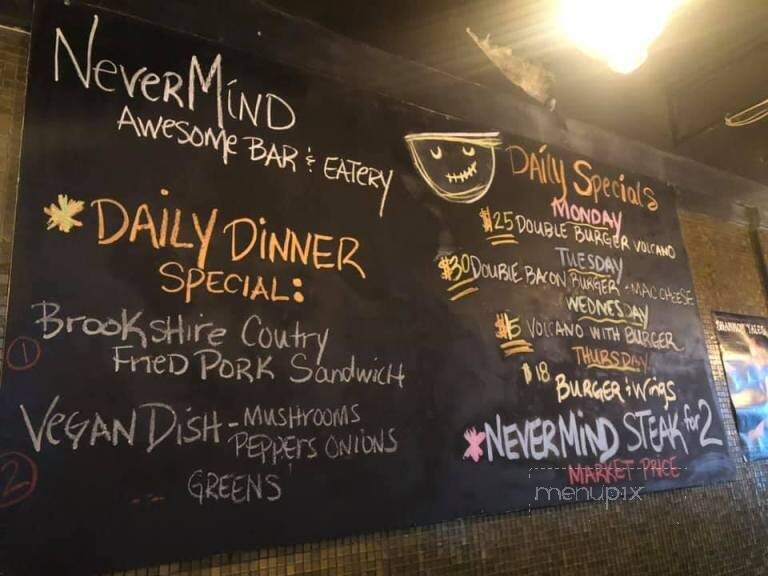 NeverMind
Awesome Bar & Eatery
* Daily Dinner
Special:
1 Brookshire Coutry
Fried Pork Sandwich
2 Vegan Dish - Mushrooms
Peppers Onions
Greens
Daily Specials
Monday
$25 Double Burger Volcano
Tuesday
$30 Double Bacon Burger - Mac Cheese
Wednesday
$15 Volcano with Burger
Thursday
$18 Burger & Wings
* NeverMind Steak for 2
Market Price
menupix